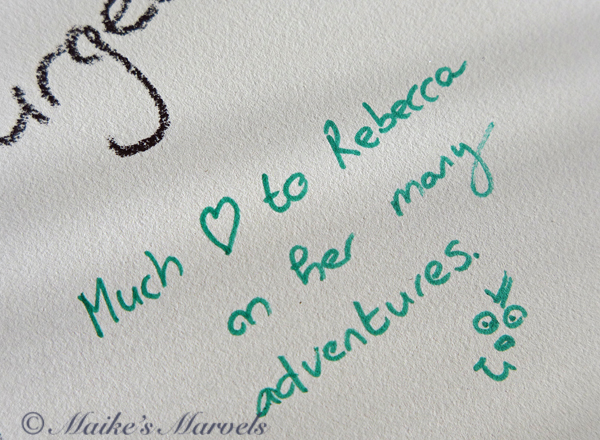 urge
Much ♡ to Rebecca
on her many
adventures.
© Maike's Marvels